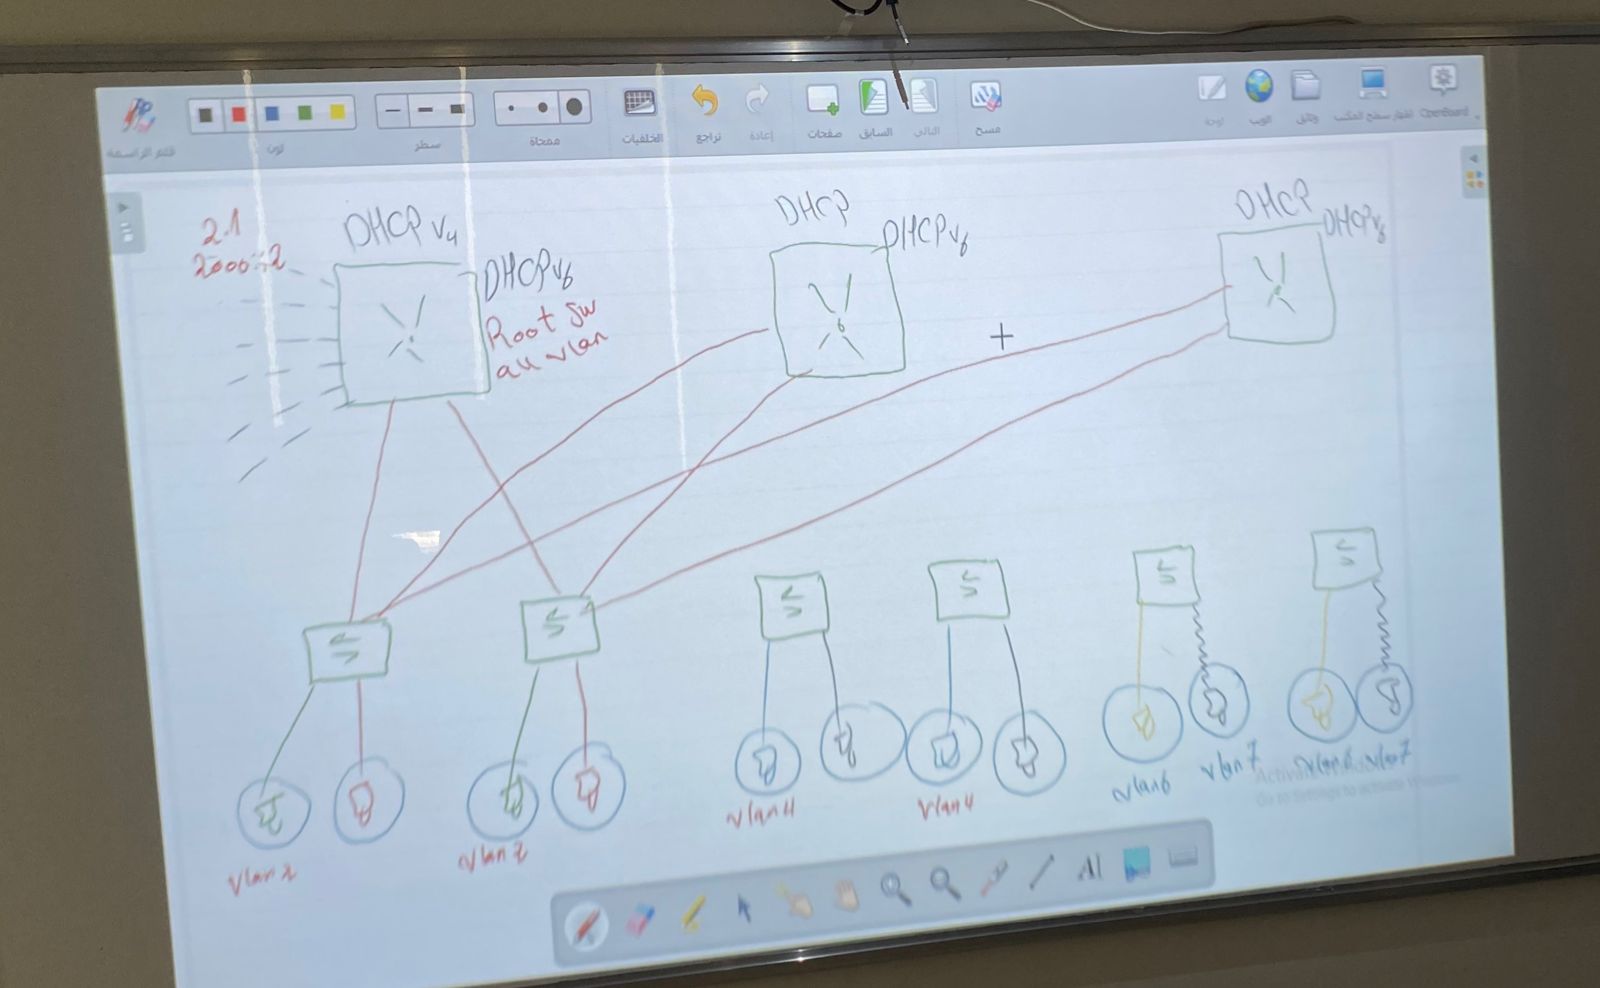 قلم الرأسمة
لون
سطر
ممحاة
الخلفيات
تراجع
إعادة
صفحات
السابق
التالي
مسح
لوحة
الويب
وثائق
اظهار سطح المكتب
OpenBoard
2.1
2000::2
DHCP v4
DHCPv6
Root SW
all vlan
DHCP
DHCPv6
DHCP
DHCPv6
vlan 2
vlan 2
vlan 4
vlan 4
vlan 6
vlan 7
vlan 6
vlan 7
Activate Windows
Go to Settings to activate Windows.
AI